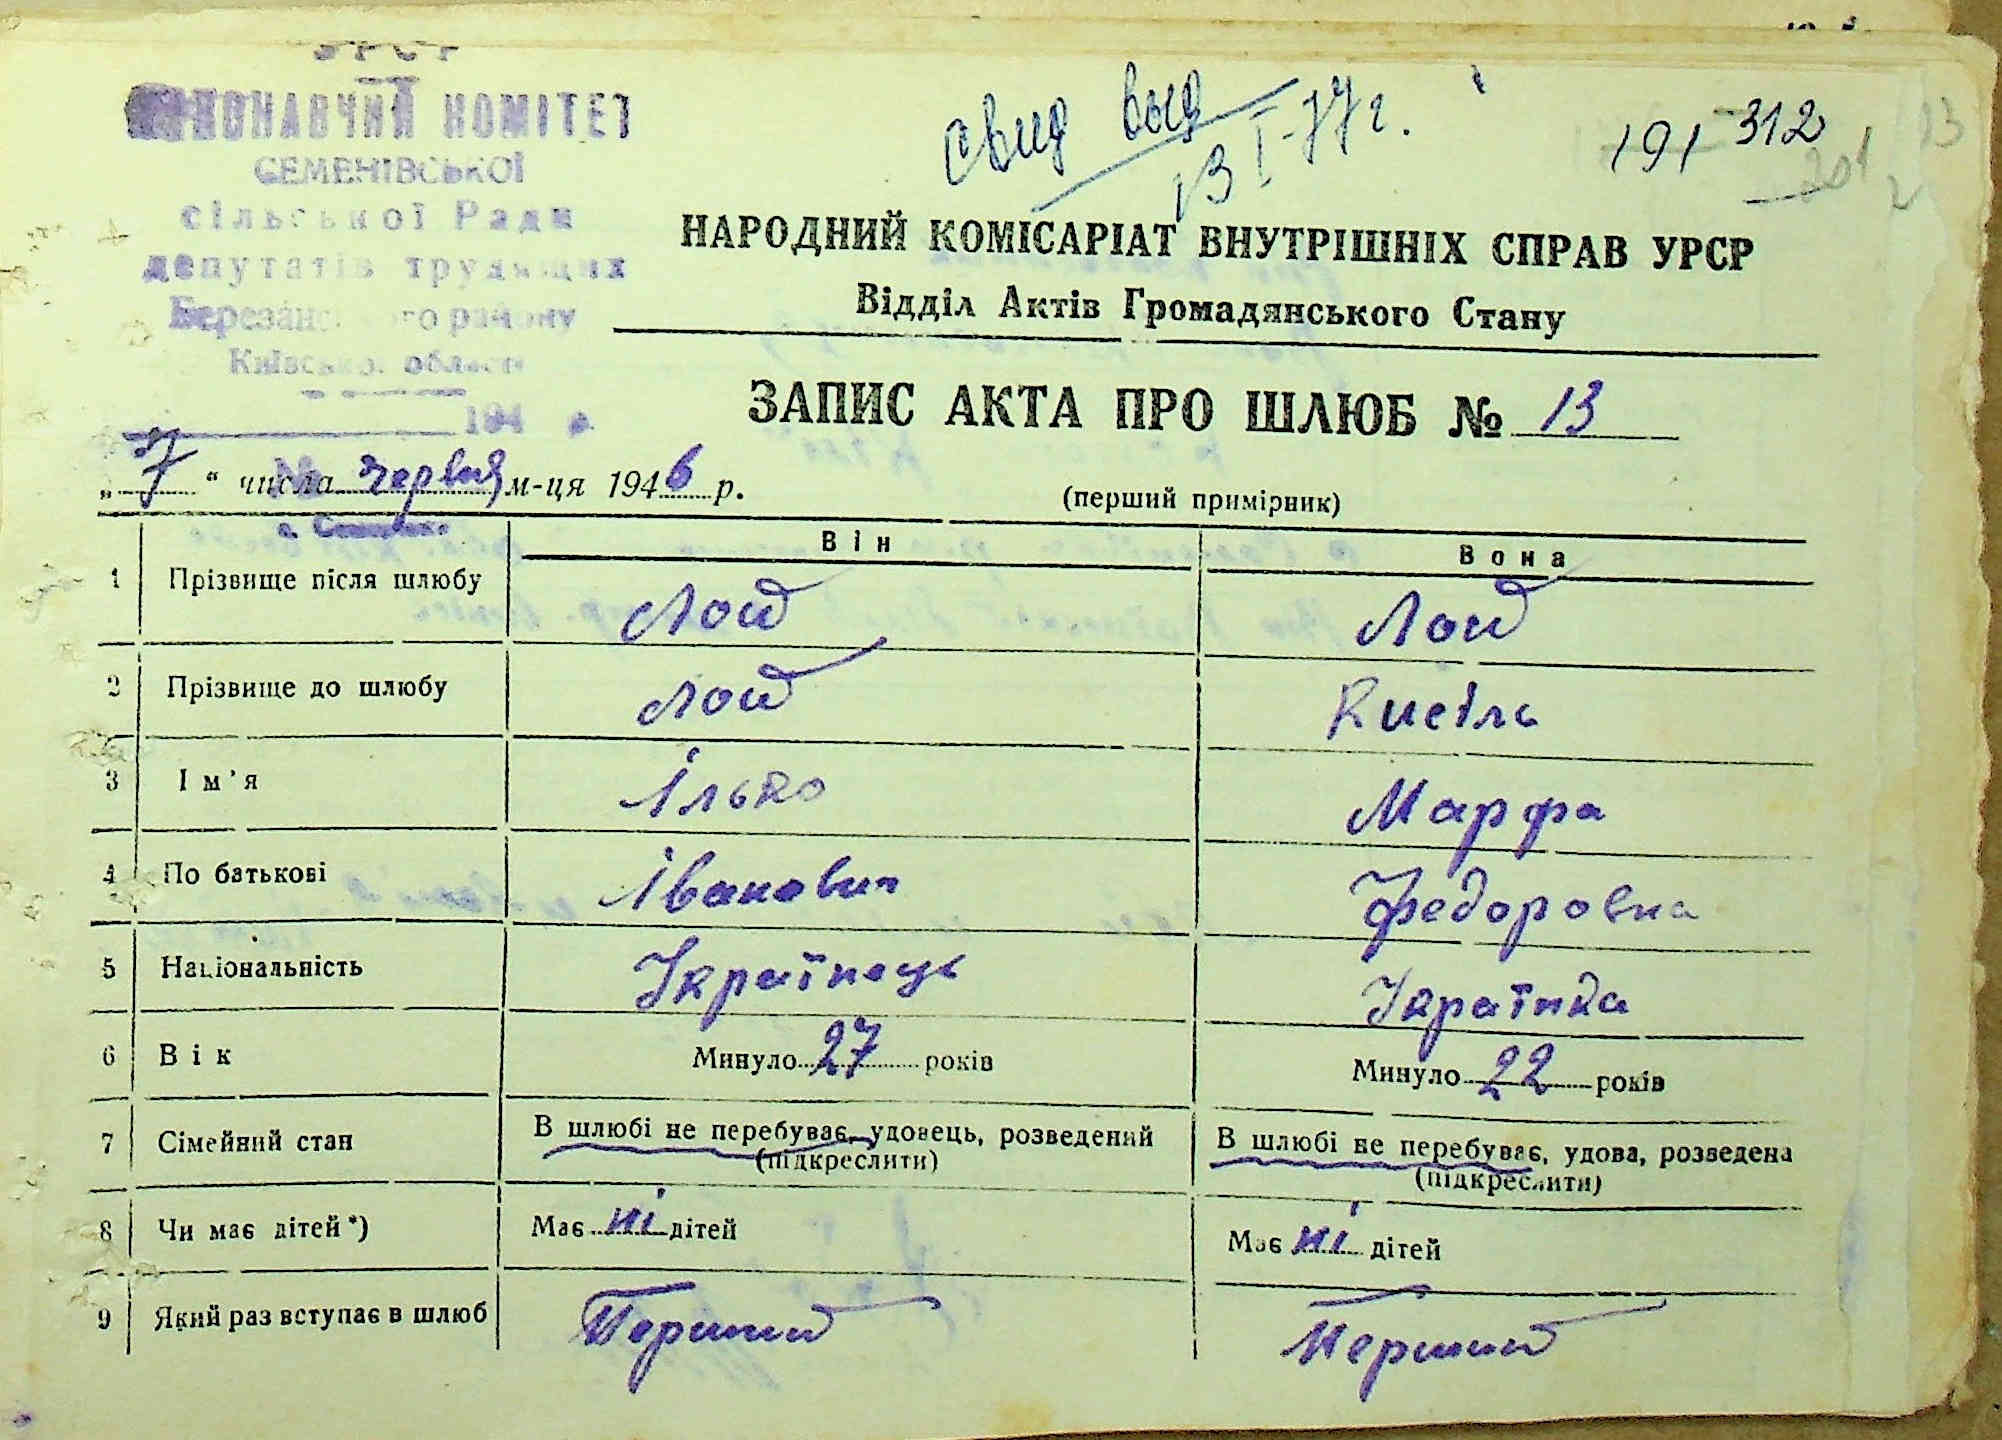 УРСР
ВИКОНАВЧИЙ КОМІТЕТ
СЕМЕНІВСЬКОЇ
сільської Ради
депутатів трудящих
Березанського району
Київської області
194 р.
№
с. Семенівка
Свид выд
13 I-77 г.
191 312
201
13
НАРОДНИЙ КОМІСАРІАТ ВНУТРІШНІХ СПРАВ УРСР
Відділ Актів Громадянського Стану
ЗАПИС АКТА ПРО ШЛЮБ № 13
„7“ числа червня м-ця 1946 р.
(перший примірник)
Він Вона
1 Прізвище після шлюбу Лой Лой
2 Прізвище до шлюбу Лой Кисіль
3 Ім'я Ілько Марфа
4 По батькові Іванович Федоровна
5 Національність Українець Українка
6 Вік Минуло 27 років Минуло 22 років
7 Сімейний стан В шлюбі не перебуває, удовець, розведений В шлюбі не перебуває, удова, розведена
(підкреслити) (підкреслити)
8 Чи має дітей*) Має ні дітей Має ні дітей
9 Який раз вступає в шлюб Перший Перший